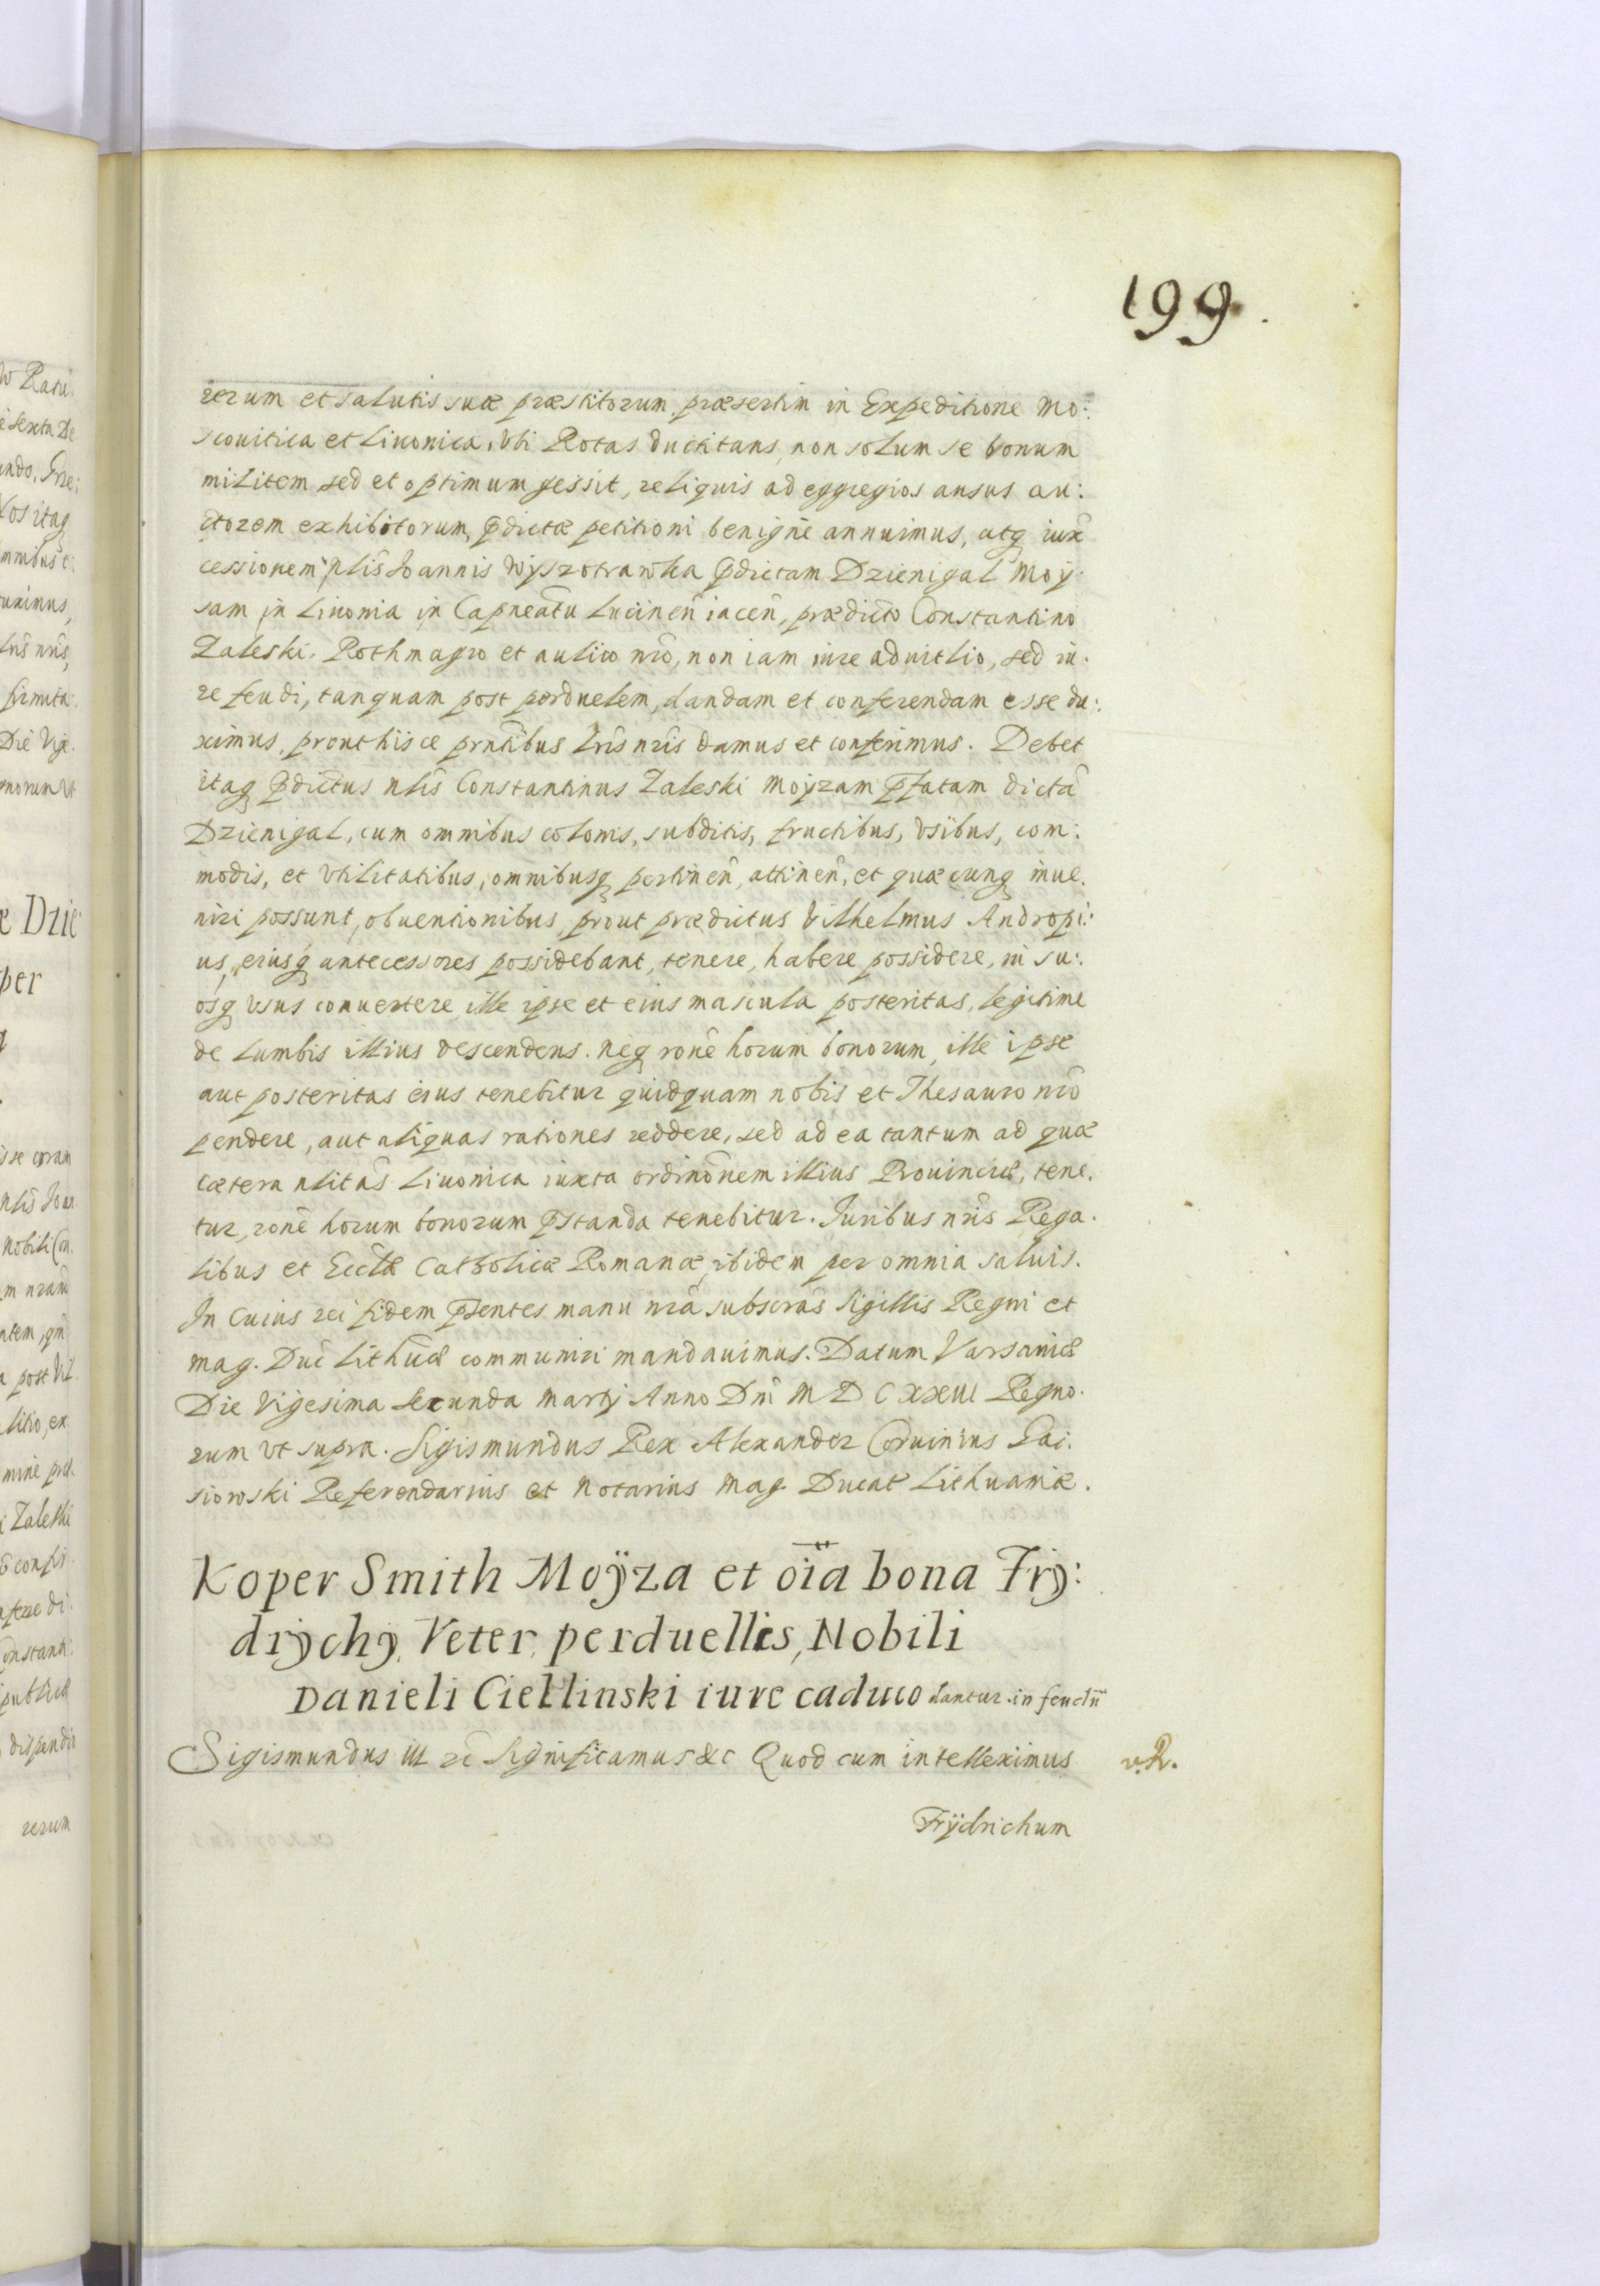 199.
rerum et salutis suæ præstitorum, præsertim in Expeditione Mo:
scouitica et Liuonica, Vbi Rotas ductitans, non solum se bonum
militem sed et optimum gessit, reliquis ad eggregios ausus au:
ctorem exhibitorum, p̃dictæ petitioni benigne annuimus, atq iux̃
cessionem Nlis̃ Joannis Wyszotrawka p̃dictam Dzienigal Moÿ
sam in Liuonia in Capneatũ Lucineñ iaceñ, prædicto Constantino
Zaleski, Rothmagro et aulico nr̃o, non iam iure aduitlio, sed iu:
re feudi, tanquam post perduelem, dandam et conferendam esse du:
ximus, prout hisce prñtibus Lr̃is nr̃is damus et conferimus. Debet
itaq p̃dictus Nlis̃ Constantinus Zaleski Moÿzam p̃fatam dictã
Dzienigal, cum omnibus colonis, subditis, fructibus, Vsibus, com:
modis, et Vtilitatibus, omnibusq pertineñ, attineñ, et quæcunq inue.
niri possunt, obuentionibus, prout prædictus Vilhelmus Andropi:
us, eiusq antecessores possidebant, tenere, habere possidere, in su:
osq Vsus conuertere, ille ipse et eius mascula posteritas, legitime
de Lumbis illius descendens. neq ronẽ horum bonorum, ille ipse
aut posteritas eius tenebitur quidquam nobis et Thesauro nr̃o
pendere, aut aliquas rationes reddere, sed ad ea tantum ad quæ
cætera Nlitas̃ Liuonica iuxta ordinõnem illius Prouinciæ, tene.
tur, ronẽ horum bonorum p̃standa tenebitur. Juribus nr̃is Rega.
libus et Eccl̃æ Catholicæ Romanæ, ibidem per omnia saluis.
In Cuius rei fidem p̃sentes manu nr̃a subscras̃ Sigillis Regni et
Mag. Duc̃ Lithũæ communiri mandauimus. Datum Varsauiæ
Die Vigesima Secunda Martij Anno Dnĩ M D C XXIII Regno.
rum Vt supra. Sigismundus Rex Alexander Coruinius Gai.
siowski Referendarius et Notarius Mag. Ducat̃ Lithuaniæ.
Koper Smith Moÿza et oĩa bona Frÿ:
drÿchÿ Veter, perduellis, Nobili
Danieli Ciellinski iure caduco dantur in feudũ
Sigismundus III rc̃ Significamus &c Quod cum intellexiimus v.R.
Frÿdrichum